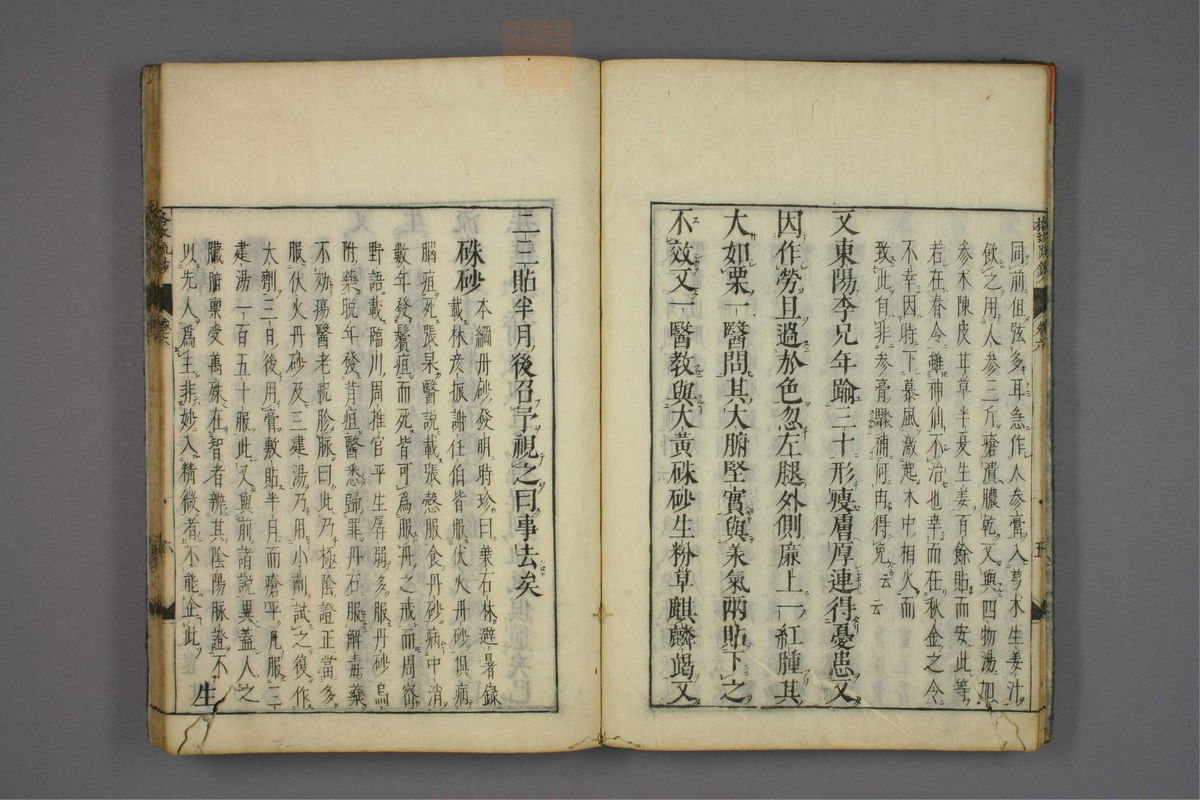 同前但弦多耳急作人參膏入葛木生姜汁
飲之用人參三斤瘡潰膿乾又與四物湯加
參木陳皮甘草半夏生姜百餘貼而安此等
若在春令雖神仙不治也幸而在秋金之令
不幸因時下暴風激起木中相火而
致此自非參膏驟補何由得免云云
又東陽李兄年踰三十形瘦膚厚連得憂患又
因作勞且過於色忽左腿外側廉上一紅腫其
大如栗一醫問其大腑堅實與承氣兩貼下之
不效又一醫教與大黃硃砂生粉草麒麟竭又
二三貼半月後召予視之曰事去矣
硃砂 本綱丹砂發明時珍曰葉石林避暑錄
載林彥振謝任伯皆服伏火丹砂俱病
腦疽死張杲醫說載張慤服食丹砂病中消
數年發鬢疽而死皆可為服丹之戒而周密
野語載臨川周推官平生孱弱多服丹砂烏
附藥晚年發背疽醫悉歸罪丹石服解毒藥
不効瘍醫老祝胗脈曰此乃極陰證正當多
服伏火丹砂及三建湯乃用小劑試之復作
大劑三日後用膏敷貼半月而瘡平凡服三
建湯一百五十服此又與前諸說異蓋人之
臟腑稟受萬殊在智者辨其陰陽脈證不
以先人為主非妙入精微者不能企此
生
卷六
五